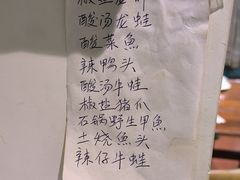 酸汤龙蛙
酸菜魚
辣鸭头
酸汤牛蛙
椒盐猪爪
石锅野生甲魚
土烧魚头
辣仔牛蛙